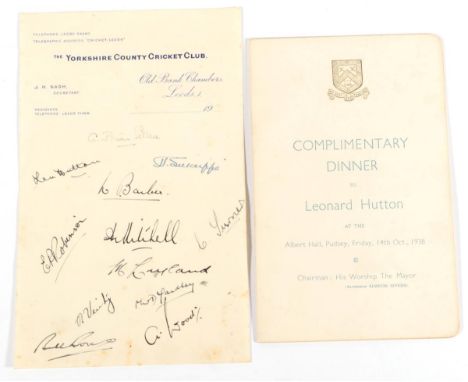 TELEPHONE LEEDS
TELEGRAPHIC ADDRESS "CRICKET LEEDS"
THE YORKSHIRE COUNTY CRICKET CLUB.
J. H. NASH,
SECRETARY.
Old Bank Chambers
Leeds, 1
RESIDENCE
TELEPHONE LEEDS
19
Len Hutton
H. Sutcliffe
W Barber.
C Turner
A Mitchell
M Leyland
H Verity
A. Wood.
COMPLIMENTARY
DINNER
TO
Leonard Hutton
AT THE
Albert Hall, Pudsey, Friday, 14th Oct., 1938
Chairman: His Worship The Mayor